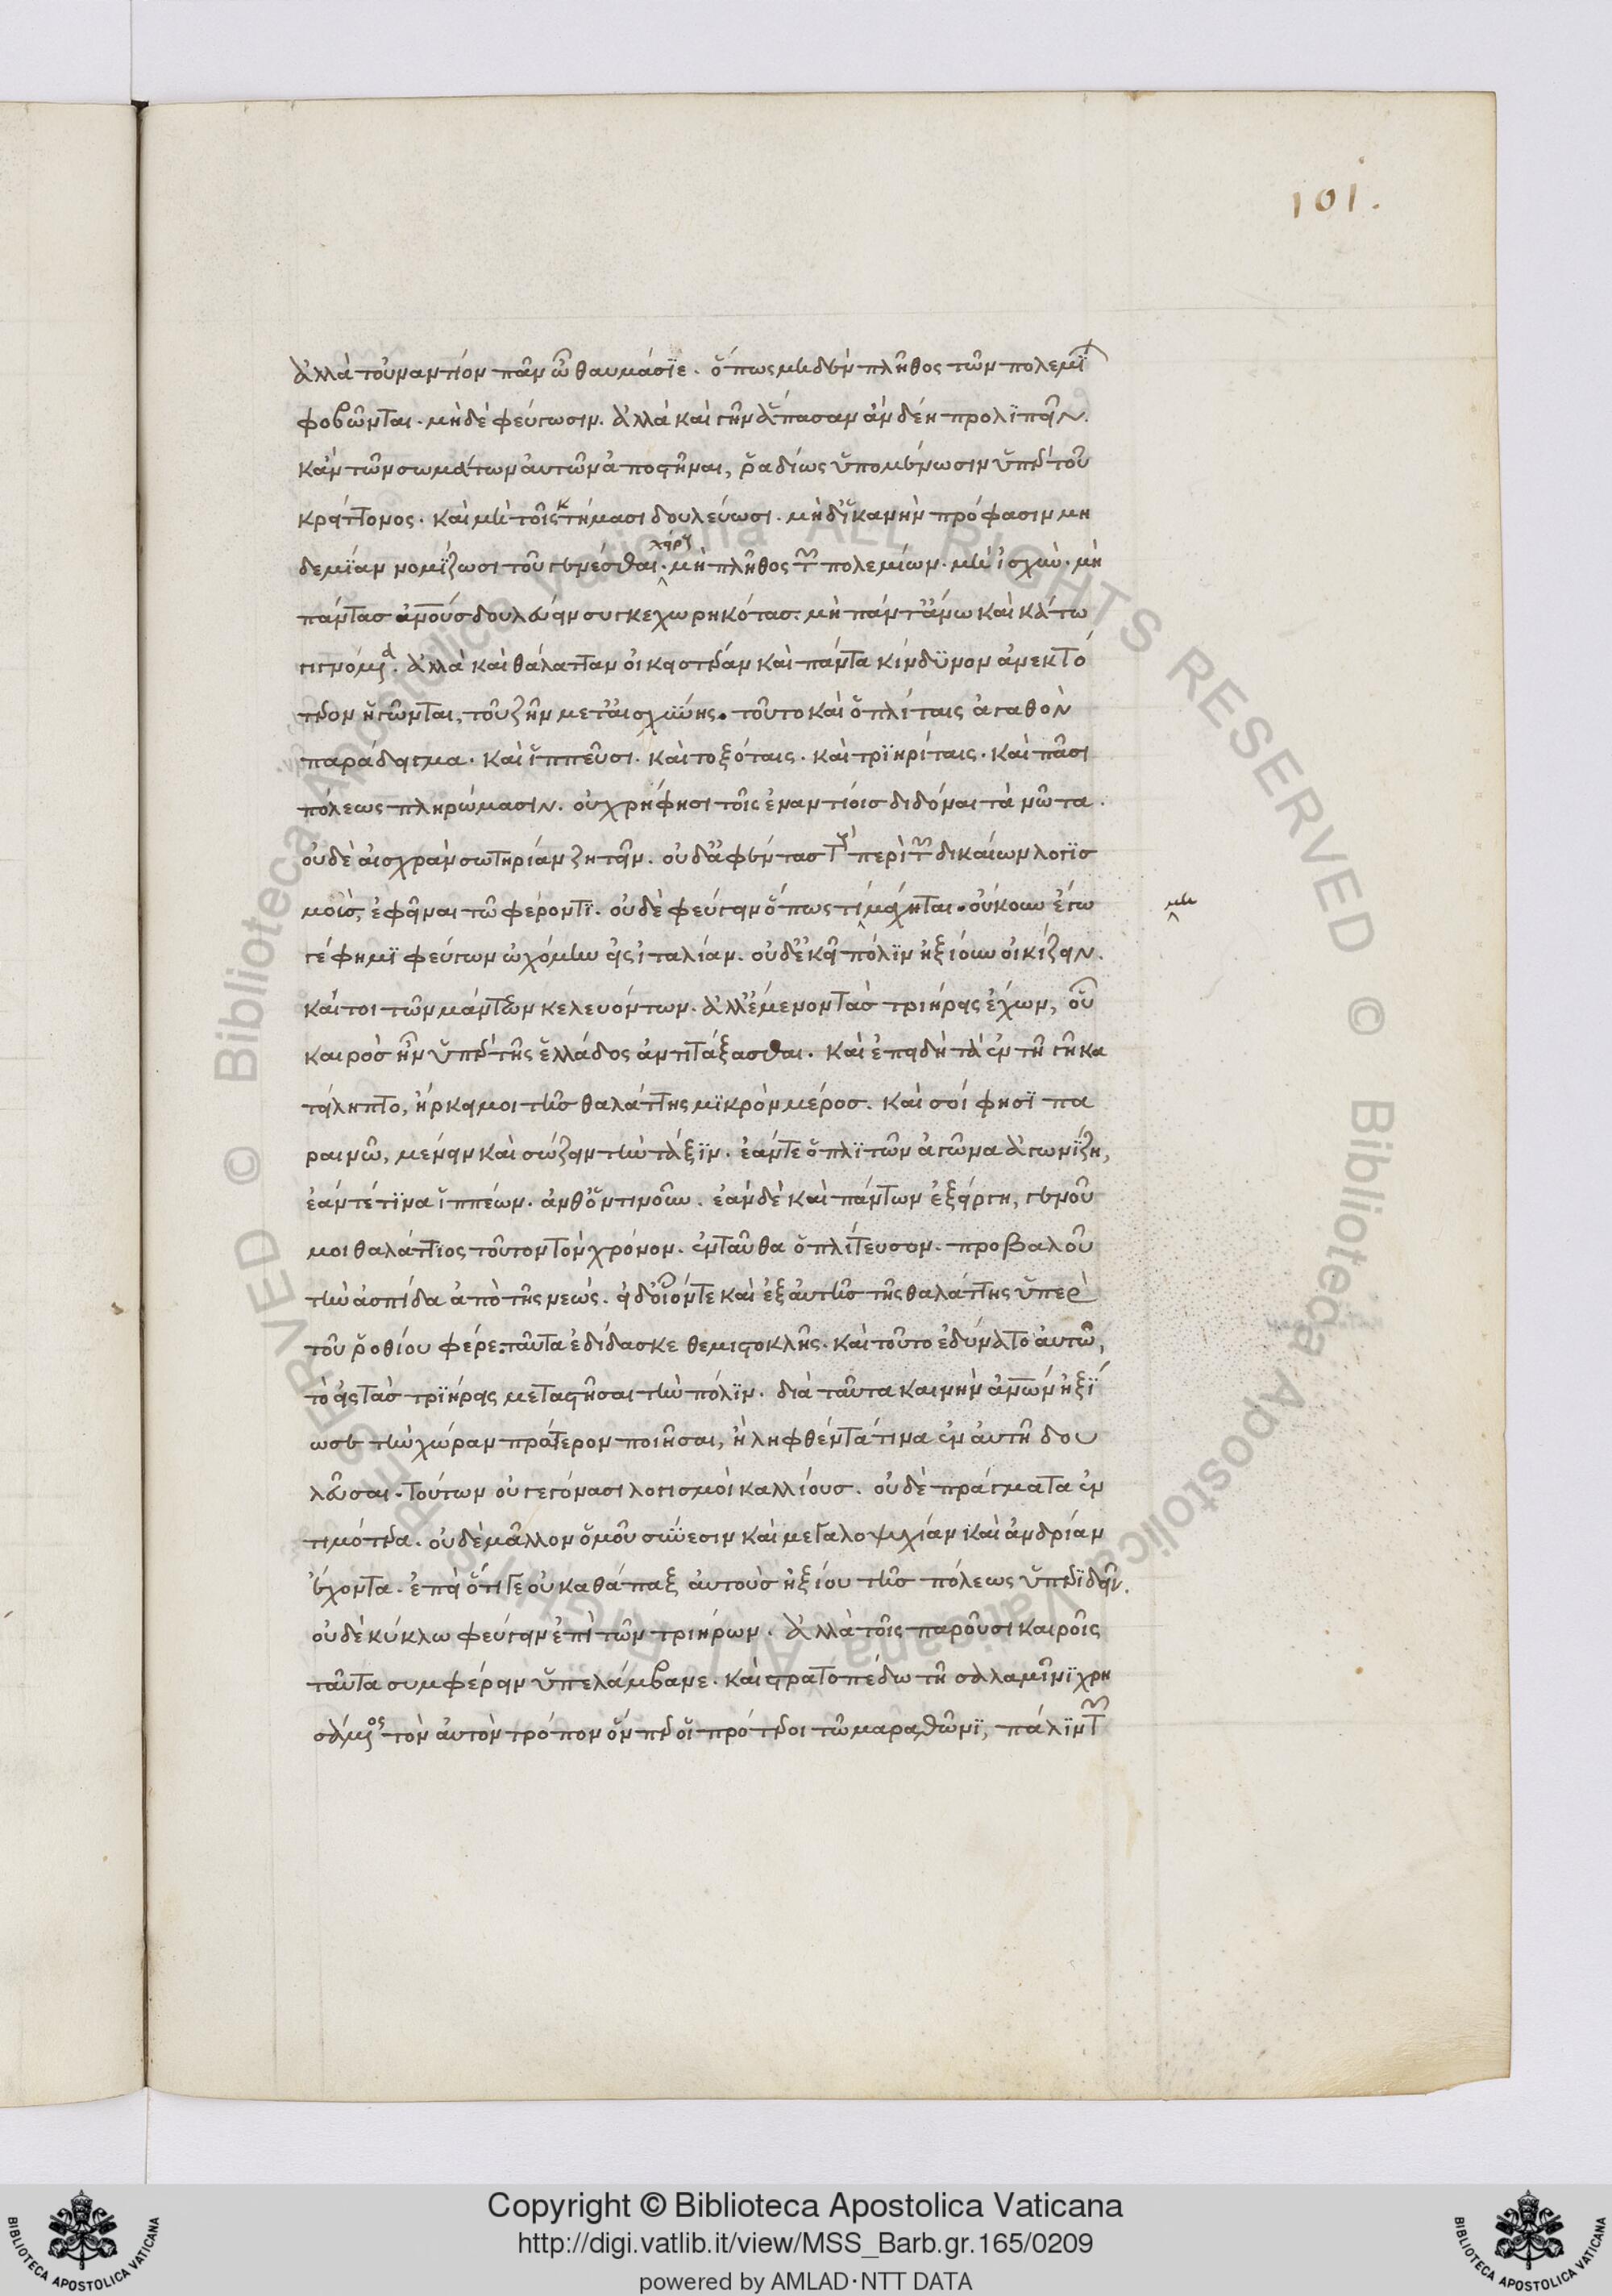 101.
ἀλλὰ τοὐναντίον πᾶν ὦ θαυμάσιε. ὅπως μηδὲν πλῆθος τῶν πολεμί
φοβῶνται. μηδὲ φεύγωσιν. ἀλλὰ καὶ γῆν ἅπασαν ἂν δέῃ προλιπεῖν.
κἂν τῶν σωμάτων αὐτῶν ἀποστῆναι, ῥαδίως ὑπομένωσιν ὑπὲρ τοῦ
κρείττονος. καὶ μὴ τοῖς κτήμασι δουλεύωσι. μηδ' ἱκανὴν πρόφασιν μη
δεμίαν νομίζωσι τοῦ γενέσθαι χείρς. μὴ πλῆθος τῶν πολεμίων. μὴ ἰσχὺν. μὴ
πάντας ἀνοὺς δουλεύειν συγκεχωρηκότας. μὴ πάντ' ἄνω καὶ κάτω
γιγνόμενα. ἀλλὰ καὶ θάλατταν οἰκειοτέραν καὶ πάντα κίνδυνον ἀνεκτό
τερον ἡγῶνται, τοῦ ζῆν μετ' αἰσχύνης. τοῦτο καὶ ὁπλίταις ἀγαθὸν
παράδειγμα. καὶ ἱππεῦσι. καὶ τοξόταις. καὶ τριηρίταις. καὶ πᾶσι
πόλεως πληρώμασιν. οὐ χρή φησι τοῖς ἐναντίοις διδόναι τὰ νῶτα.
οὐδὲ αἰσχρὰν σωτηρίαν ζητεῖν. οὐδ' ἀφέντας τοὺς περὶ τῶν δικαίων λογισ
μοὺς, ἐφεῖναι τῷ φέροντι. οὐδὲ φεύγειν ὅπως τιμείνηται. οὔκουν ἐγώ
μη
γέ φημι φεύγων ᾠχόμην εἰς ἰταλίαν. οὐδ' ἐκεῖ πόλιν ἠξίουν οἰκίζειν.
καίτοι τῶν μάντεων κελευόντων. ἀλλ' ἔμενον τὰς τριήρεις ἔχων, οὗ
καιρὸς ἦν ὑπὲρ τῆς ἑλλάδος ἀντιτάξασθαι. καὶ ἐπειδὴ τὰ ἐν τῇ γῇ κα
τείληπτο, ἤρκει μοι τῆς θαλάττης μικρὸν μέρος. καὶ σοί φησι πα
ραινῶ, μένειν καὶ σώζειν τὴν τάξιν. ἐάντε ὁπλιτῶν ἀγῶνα ἀγωνίζῃ,
ἐάντέ τινα ἱππέων. ἀνθ' ὅντινοῦν. ἐὰν δὲ καὶ πάντων ἐξείργῃ, γενοῦ
μοι θαλάττιος τοῦτον τὸν χρόνον. ἐνταῦθα ὁπλίτευσον. προβαλοῦ
τὴν ἀσπίδα ἀπὸ τῆς νεώς. εἰ δ' οἷόντε καὶ ἐξ αὐτῆς τῆς θαλάττης ὑπὲρ
τοῦ ῥοθίου φέρε. ταῦτα ἐδίδασκε θεμιστοκλῆς. καὶ τοῦτο ἐδύνατο αὐτῷ,
τὸ εἰς τὰς τριήρεις μεταστῆσαι τὴν πόλιν. διὰ ταῦτα καινὴν ἀνων ἠξί
ωσε τὴν χώραν πρότερον ποιῆσαι, ἢ ληφθέντά τινα ἐν αὐτῇ δου
λεῦσαι. τούτων οὐ γεγόνασι λογισμοὶ καλλίους. οὐδὲ πράγματα ἐν
τιμότερα. οὐδὲ μᾶλλον ὁμοῦ σύνεσιν καὶ μεγαλοψυχίαν καὶ ἀνδρίαν
ἔχοντα. ἐπεὶ ὅτι γε οὐ καθάπαξ αὐτοὺς ἠξίου τῆς πόλεως ὑπεριδεῖν.
οὐδὲ κύκλῳ φεύγειν ἐπὶ τῶν τριήρων. ἀλλὰ τοῖς παροῦσι καιροῖς
ταῦτα συμφέρειν ὑπελάμβανε. καὶ στρατοπέδῳ τῇ σαλαμῖνι χρη
σάμενος τὸν αὐτὸν τρόπον ὅνπερ οἱ πρότεροι τῷ μαραθῶνι, πάλιν τῶν
Copyright © Biblioteca Apostolica Vaticana
http://digi.vatlib.it/view/MSS_Barb.gr.165/0209
powered by AMLAD·NTT DATA
BIBLIOTECA APOSTOLICA VATICANA
BIBLIOTECA APOSTOLICA VATICANA
© Biblioteca Apostolica Vaticana ALL RIGHTS RESERVED © Biblioteca Apostolica Vaticana ALL RIGHTS RESERVED